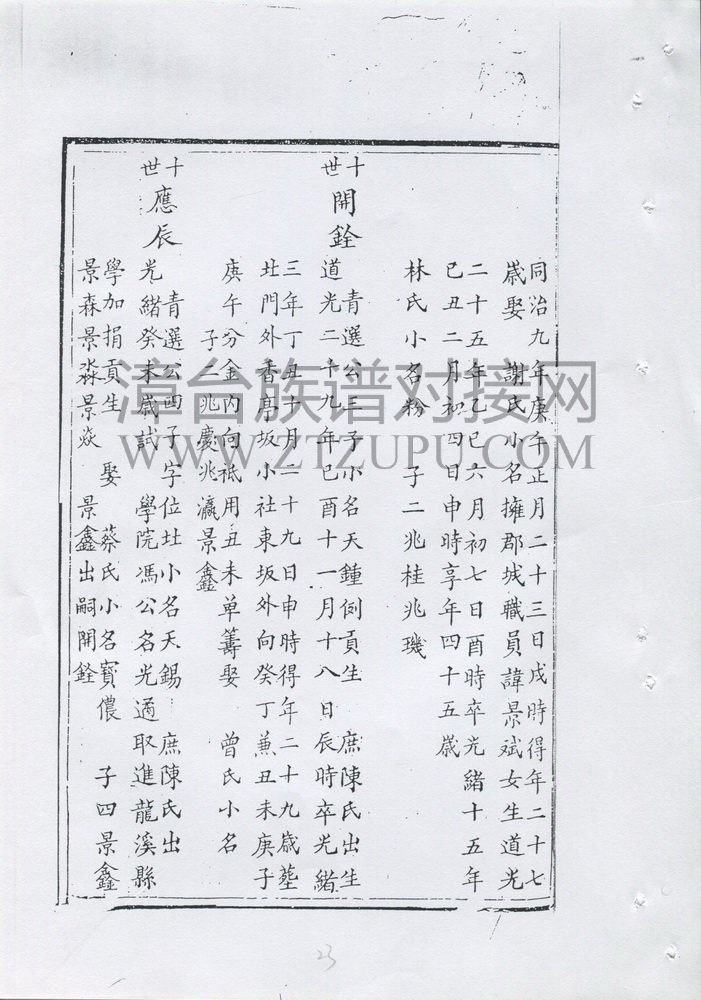 同治九年庚午正月二十三日戌時得年二十七
歲娶 謝氏小名擁郡城職員諱景斌女生道光
二十五年乙巳六月初七日酉時卒光緒十五年
己丑二月初四日申時享年四十五歲
林氏小名粉 子二兆桂兆璣
十世 開銓 青選公三子小名天鍾例貢生 庶陳氏出生
道光二十九年己酉十一月十八日辰時卒光緒
三年丁丑十月二十九日申時得年二十九歲塟
北門外香亭坂小社東坂外向癸丁兼丑未庚子
庚午分金內向祗用丑未單籌娶 曾氏小名
子二兆慶兆瀛景鑫
十世 應辰 青選公四子字位壯小名天錫 庶陳氏出
光緒癸未歲試 學院馮公名光遹取進龍溪縣
學加捐貢生 娶 蔡氏小名寶儂 子四景鑫
景森景淼景焱 景鑫出嗣開銓
漳台族谱对接网
WWW.ZTZUPU.COM
23